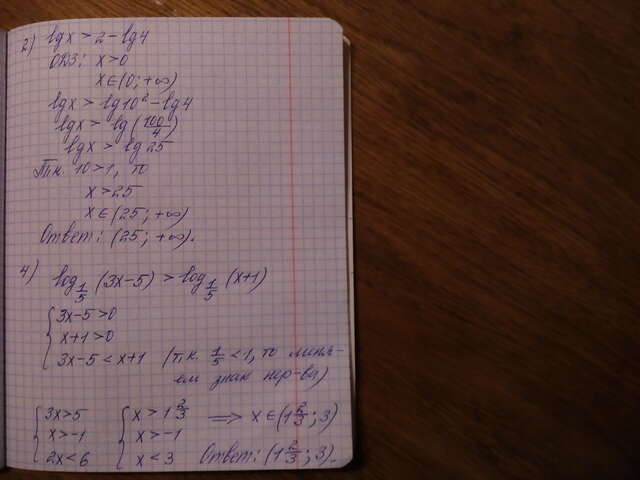 2) lg x > 2 - lg 4
ОДЗ: x > 0
x ∈ (0; +∞)
lg x > lg 10² - lg 4
lg x > lg (100/4)
lg x > lg 25
Т.к. 10 > 1, то
x > 25
x ∈ (25; +∞)
Ответ: (25; +∞).
4) log_{1/5} (3x-5) > log_{1/5} (x+1)
{ 3x-5 > 0
x+1 > 0
3x-5 < x+1 (т.к. 1/5 < 1, то меня-
ем знак нер-ва)
{ 3x > 5 { x > 1 2/3 ⟹ x ∈ (1 2/3; 3)
x > -1 x > -1
2x < 6 x < 3 Ответ: (1 2/3; 3).